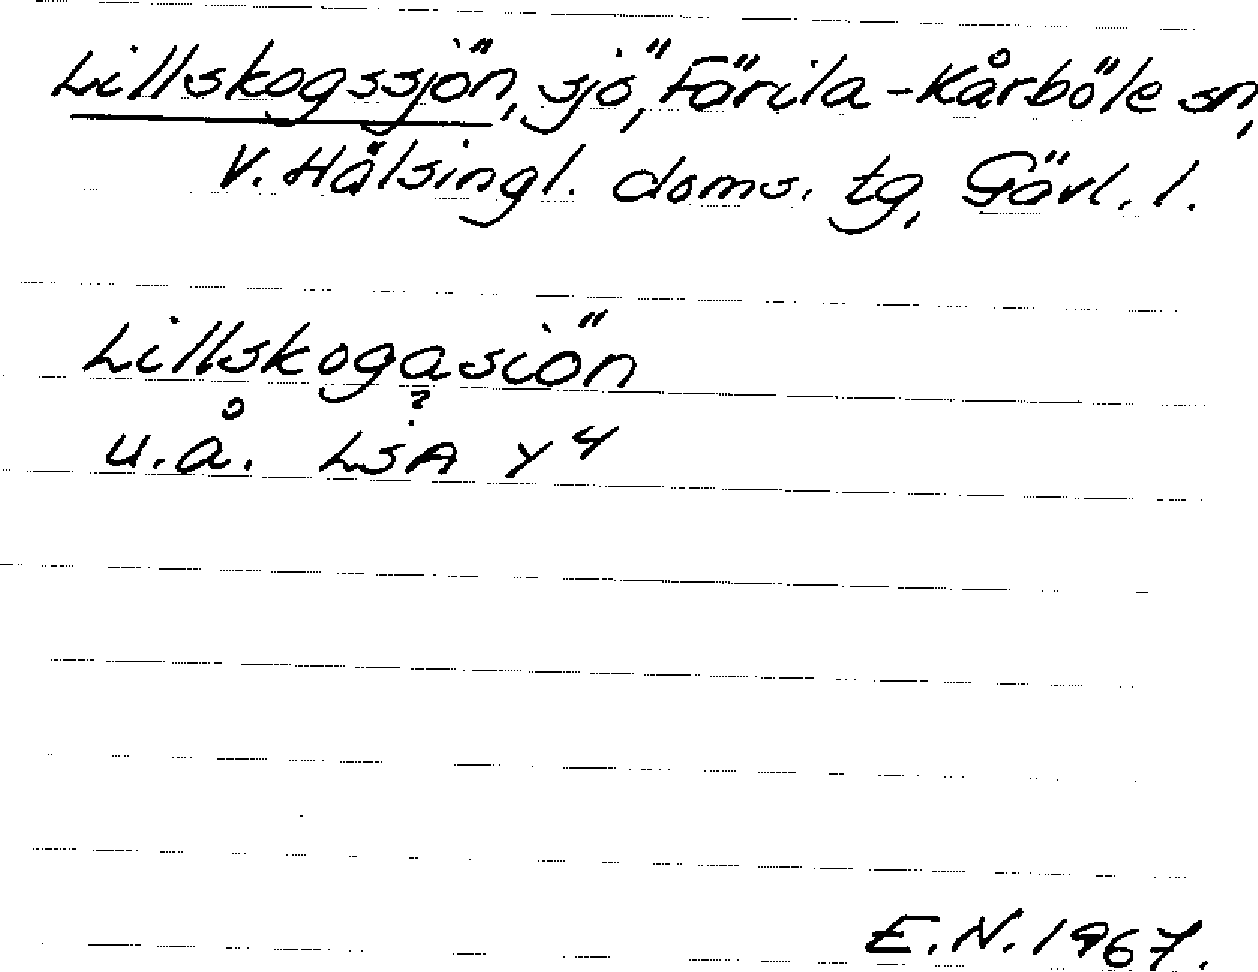 Lillskogssjön, sjö, Färila-Kårböle sn,
V. Hälsingl. doms. tg, Gävl. l.
Lillskogasiön
?
u.å. LSA Y 4
E.N. 1967.